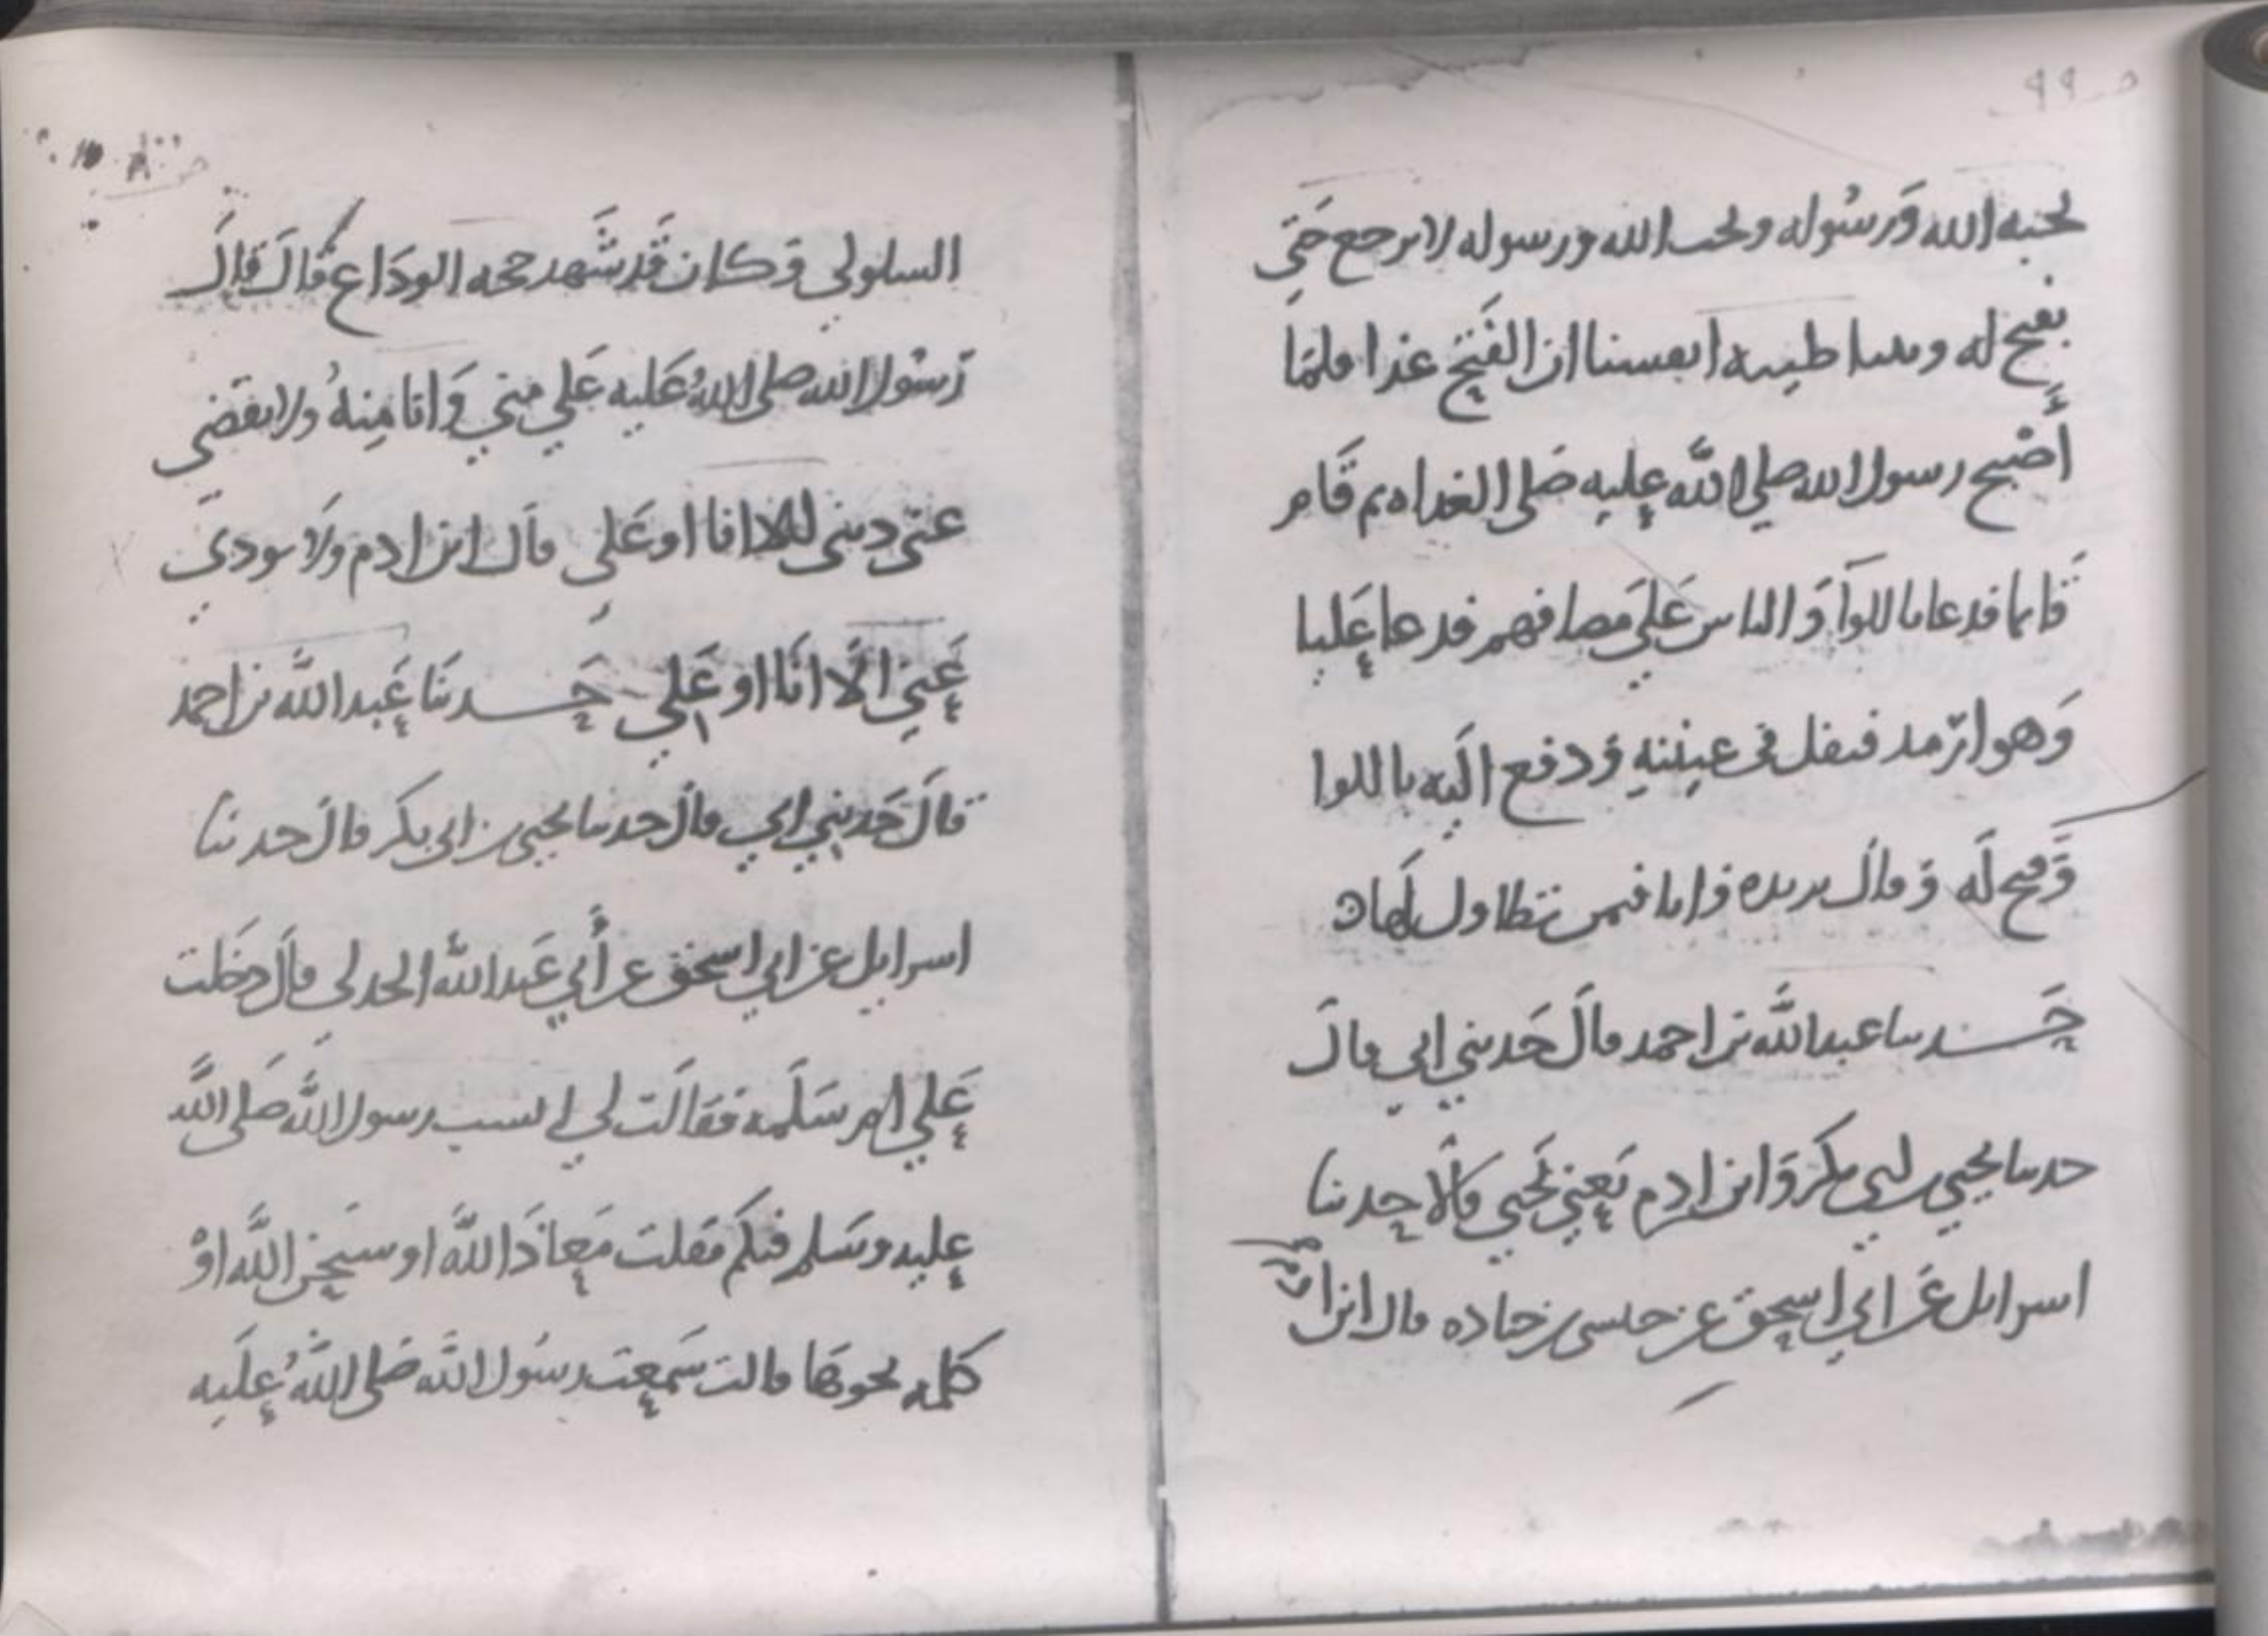 ص ٩٩
يحبه الله وَرسُوله ويحب الله ورسوله لا يرجع حَتى
يفتح له وبتنا طيبه انفسنا ان الفَتح غدا فلمَا
أَصْبح رسول الله صلي اللَّه عليه صَلى الغداه ثم قَام
قَايما فدعا باللوآ وَالناس عَليَ مصافهم فدعا عَليا
وَهو ارمد فتفل في عينيه وَدفع اليَه باللوا
وَفتح لَه وَقال بريده وَانا فيمن تطاول لَها ه
حَدثنا عبد اللَّه بن احمد قالَ حَدثني ابي قالَ
حدثنا يحيي بن ابي بكر وَابن ادم يَعني يَحيي قَالا حدثنا
اسرايل عَن ابي اسحق عن حبشي بن جناده قال ابن ادم
السلولي وَكان قَد شَهد حجه الودَاع قَالَ قالَ
رَسُول الله صلى اللهُ عَليه عَلي مني وَانا مِنهُ ولا يقضي
عني ديني الا انا او عَلي قاَل ابن ادم وَلا يودي
عَني الَا انَا او عَلي حَدثنَا عَبد اللَّه بن احمد
قالَ حَدثني ابي قال حدثنا يحيي بن ابي بكر قالَ حدثنا
اسرايل عن ابي اسحق عن أَبي عَبد اللَّه الجدلي قالَ دخَلت
عَلي ام سَلَمه فقالَت لي ايسب رسول اللَّه صَلى اللَّه
عليه وسَلم فيكم فقلت مَعاذَ اللَّه او سبحن اللَّه اوْ
كلمه نحوهَا قالت سَمعت رسُول اللَّه صَلى اللَّهُ علَيه